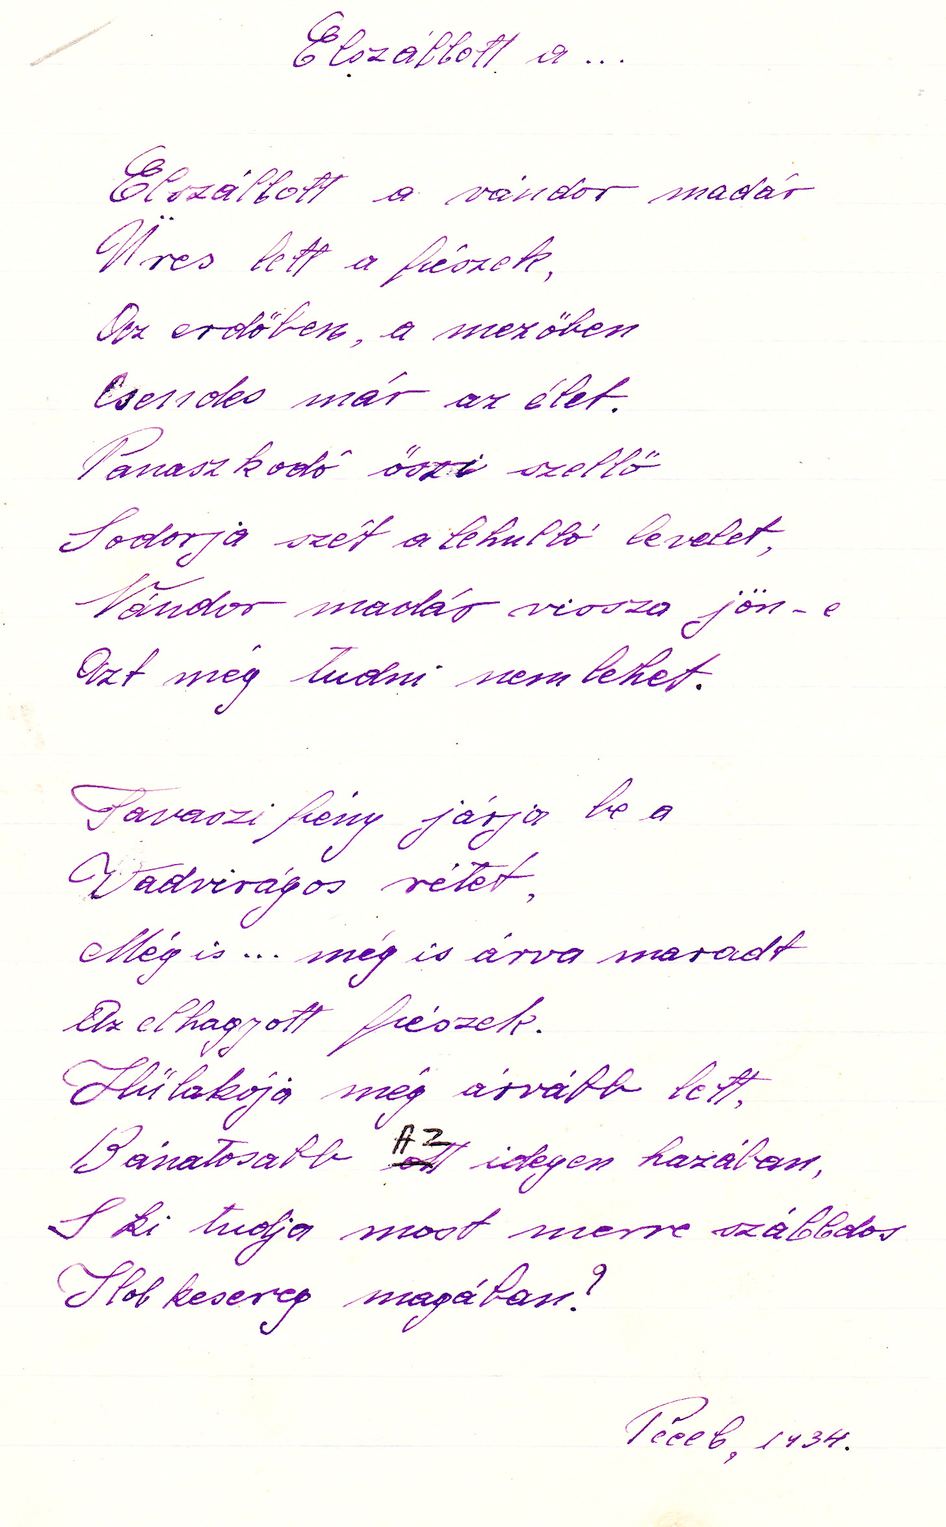 Elszállott a ...
Elszállott a vándor madár
Üres lett a fészek,
Az erdőben, a mezőben
Csendes már az élet.
Panaszkodó őszi szellő
Sodorja szét a lehulló levelet,
Vándor madár vissza jön-e
Azt még tudni nem lehet.
Tavaszi fény járja be a
Vadvirágos rétet,
Még is... még is árva maradt
Az elhagyott fészek.
Hűlakója még árvább lett,
Bánatosabb AZ idegen hazában,
S ki tudja most merre szálldos
Hol kesereg magában?
1934.